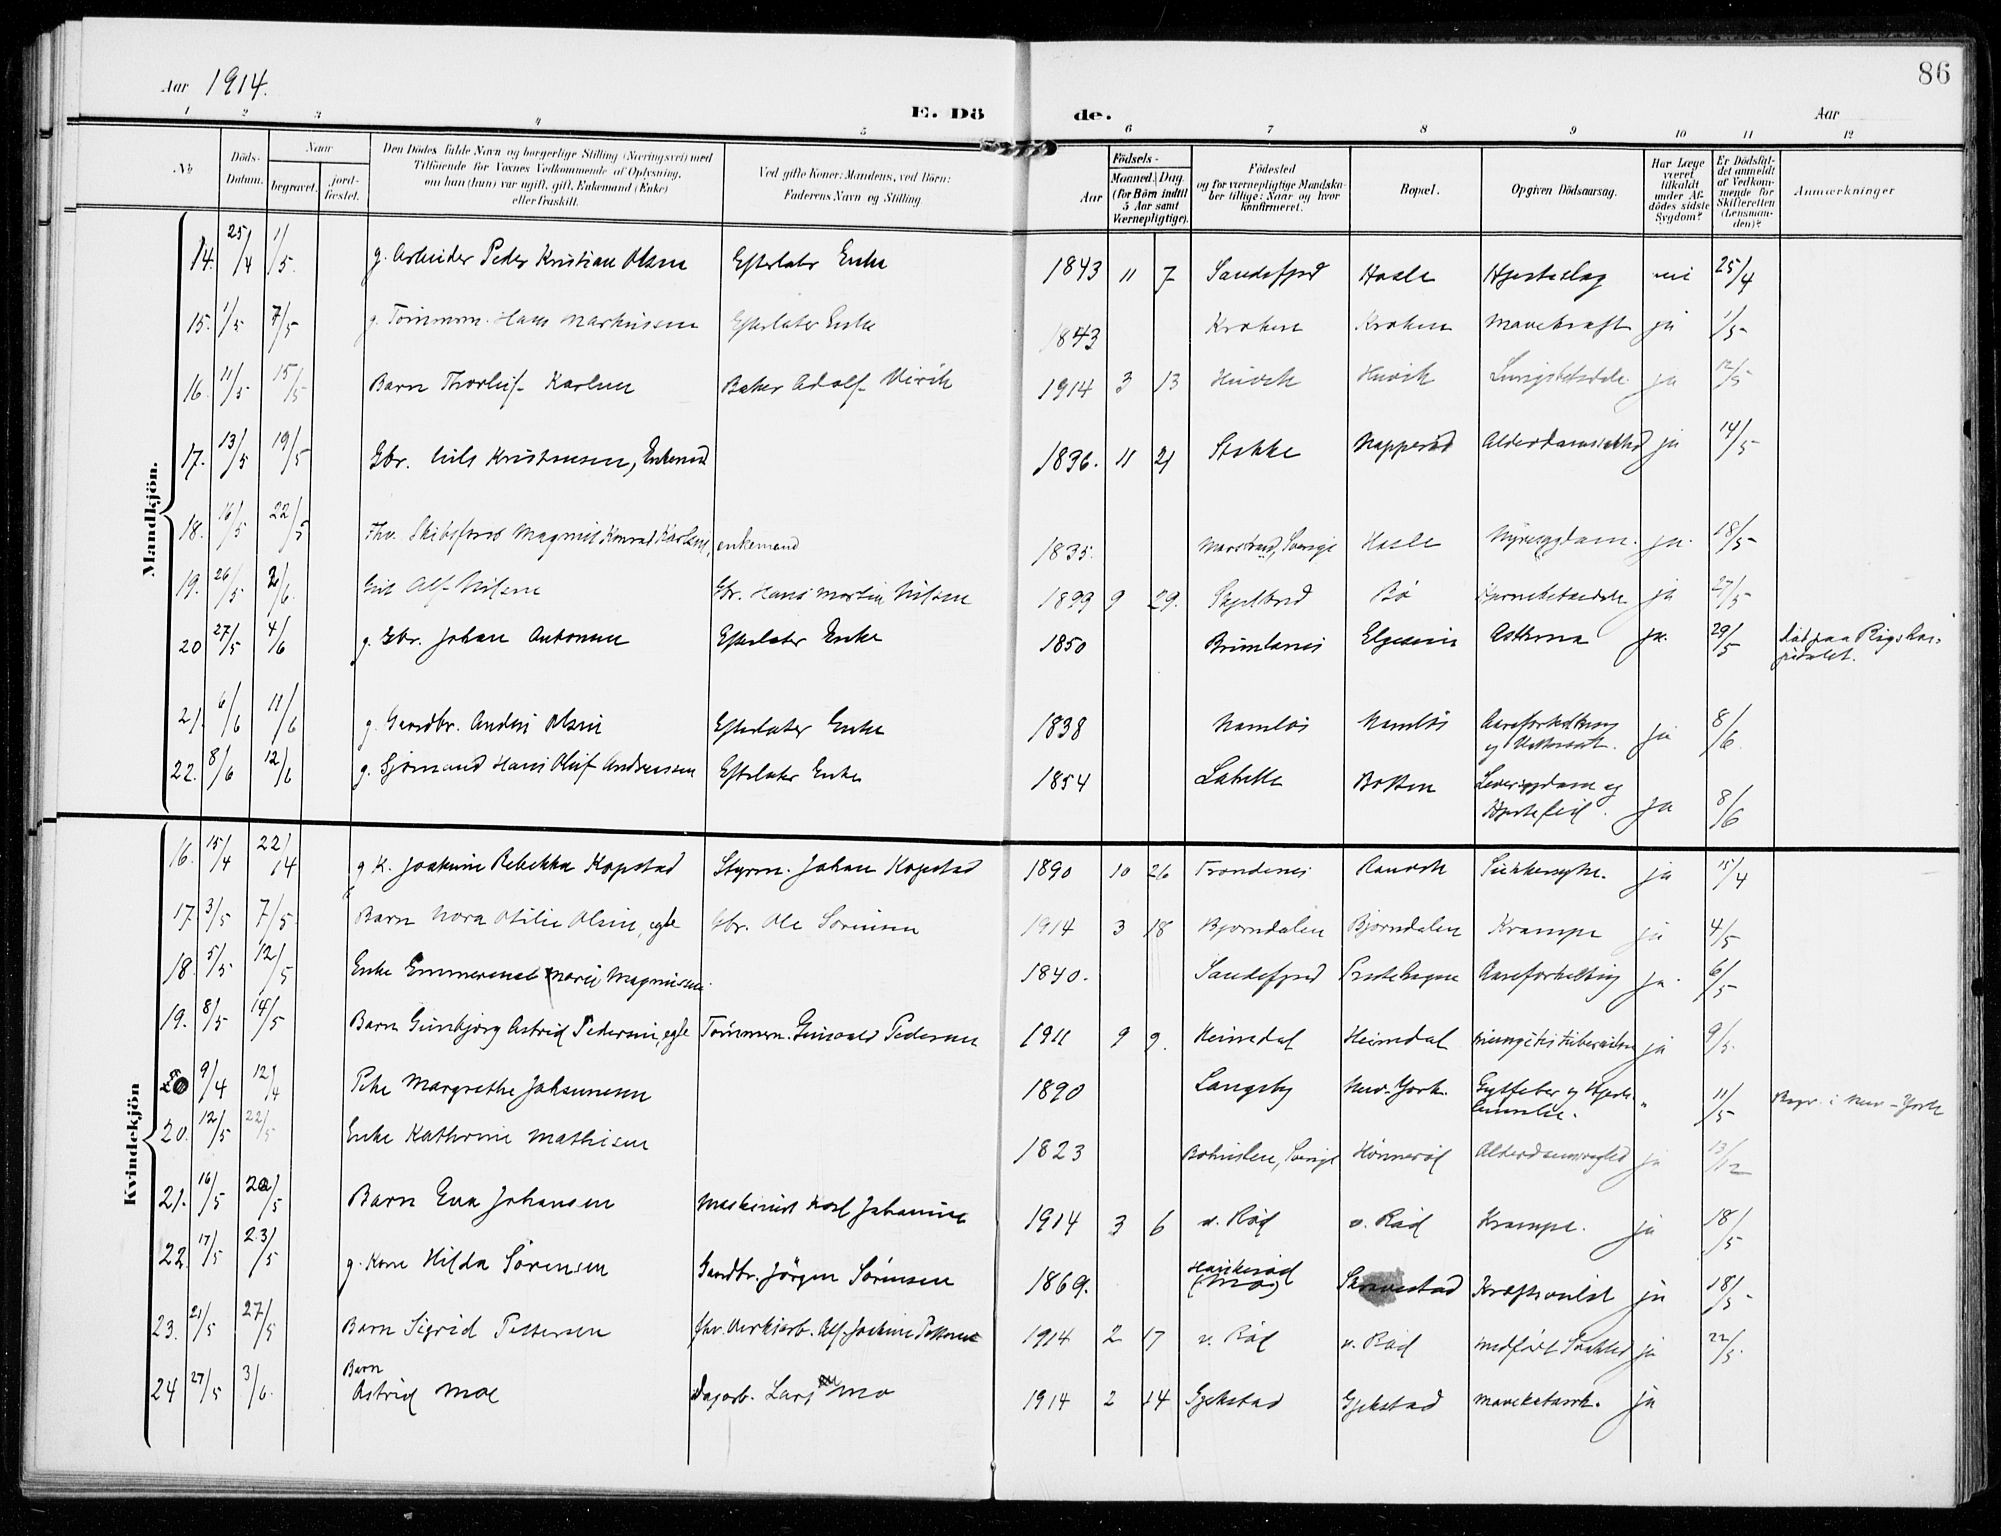 86
Aar 1914.
E. Dö de.
Aar
1 2 3 4 5 6 7 8 9 10 11 12
No. Döds-Datum. Naar begravet. jord-fæstet. Den Dödes fulde Navn og borgerlige Stilling (Næringsvei) med Tilföiende for Voxnes Vedkommende af Oplysning, om han (hun) var ugift, gift, Enkemand (Enke) eller fraskilt. Ved gifte Koner: Mandens, ved Börn: Faderens Navn og Stilling. Födsels- Aar Maaned. Dag. (for Börn indtil 5 Aar samt Værnepligtige). Födested og for værnepligtige Mandskaber tillige: Naar og hvor konfirmeret. Bopæl. Opgiven Dödsaarsag. Har Læge været tilkaldt under Afdödes sidste Sygdom? Er Dödsfaldet anmeldt af Vedkommende for Skifteretten (Lensmanden)? Anmærkninger
Mandkjön.
14. 25/4 1/5. g. Arbeider Peder Kristian Olsen Efterlater Enke 1843 11 7 Sandefjord Hasle Hjerteslag nei 25/4
15. 1/5 7/5 g. Tømmerm. Hans Markussen Efterlater Enke 1843 Kroken Kroken Mavekræft ja 1/5
16. 11/5 15/5 Barn Thorleif Karlsen Baker Adolf Ulrik 1914 3 13 Huvik Huvik ja 12/5
17. 13/5 19/5 Gbr. Nils Kristensen, Enkemd 1836. 11 21 Stokke Napperød ja 14/5
18. 16/5 22/5 Fhv. Skibsfører Magnus Konrad Karlsen, enkemand 1835. Marstrand, Sverige Hasle Nyresygdom. ja. 18/5
19. 26/5 2/6. Alf Nilsen Gbr. Hans Martin Nilsen 1899 9 29. Skjelbred Bø ja 27/5
20 27/5 4/6 g. Gbr. Johan Antonsen Efterlater Enke 1850 Brunlanes Elgesem Asthma ja. 29/5 død paa Rigshospitalet.
21. 6/6 11/6 g. Gaardbr. Anders Olsen Efterlater Enke 1838 Namløs Namløs Aareforkalkning og ja 8/6.
22. 8/6 12/6 g. Sjømand Hans Oluf Andreassen Efterlater Enke 1854 Labakke Botten Leversygdom og Hjertefeil. ja 8/6
Kvindekjön
16. 15/4 22/14 g. K. Joakime Rebekka Kopstad Styrm. Johan Kopstad 1890 10 26 Trondenes Ranvik Sukkersyke. ja 15/4
17. 3/5 7/5. Barn Nora Otilie Olsen, egte Gbr. Ole Sørensen 1914 3 18 Bjørndalen Bjørndalen Krampe ja 4/5
18. 5/5 12/5 Enke Emmerense Marie Magnussen. 1840. Sandefjord Prestehagen Aareforkalkning ja. 6/5
19. 8/5 14/5 Barn Gunbjørg Astrid Pedersen, egte Tømmerm. Pedersen 1911 9 9. Heimdal Heimdal ja 9/5.
9/4 12/4 Pike Margrethe Johannesen 1890 Langeby New-York. og " 11/5 Begr. i New-York
20. 12/5 22/5 Enke Kathrine Mathisen 1823 Bohuslen, Sverige Hønnerød ja 13/12
21. 16/5 20/5 Barn Eva Johansen Maskinist Karl Johansen 1914 3 6 v. Rød v. Rød Krampe. ja 18/5
22. 17/5 23/5 g. Kone Hilda Sørensen Gaardbr. Jørgen Sørensen 1869. Haukerød (Mo) ja 18/5
23. 21/5 27/5 Barn Sigrid Pettersen 1914 2 17 v. Rød v. Rød medfødt Svakhed ja 22/5.
24 27/5 3/6. Barn Astrid Moe Dagarb. Lars Mo 1914 2 14 Gjekstad Gjekstad Mavekatarrh. ja